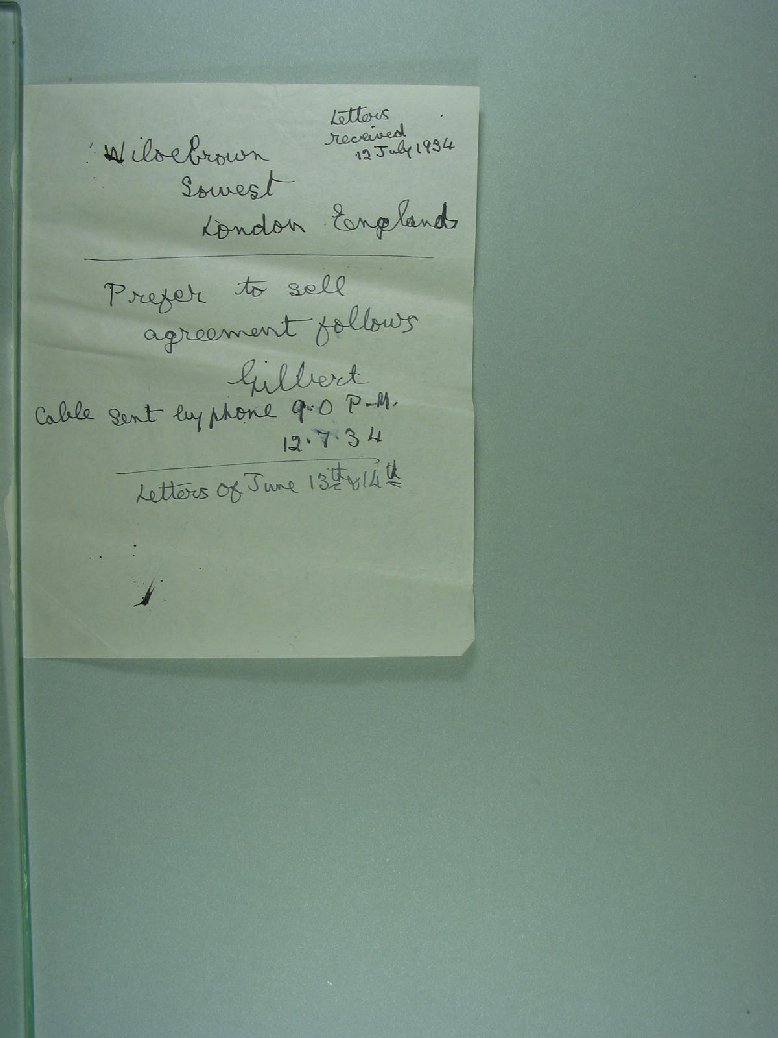 Letters
received
12 July 1934
Wiloebrown
Sowest
London England
Prefer to sell
agreement follows
Gilbert
Cable sent by phone 9.0 P.M.
12.7.34
Letters of June 13th & 14th